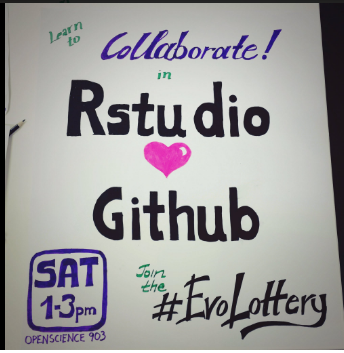 Learn
to
Collaborate!
in
Rstudio
Github
SAT
1-3pm
OPENSCIENCE 903
Join
the
#EvoLottery